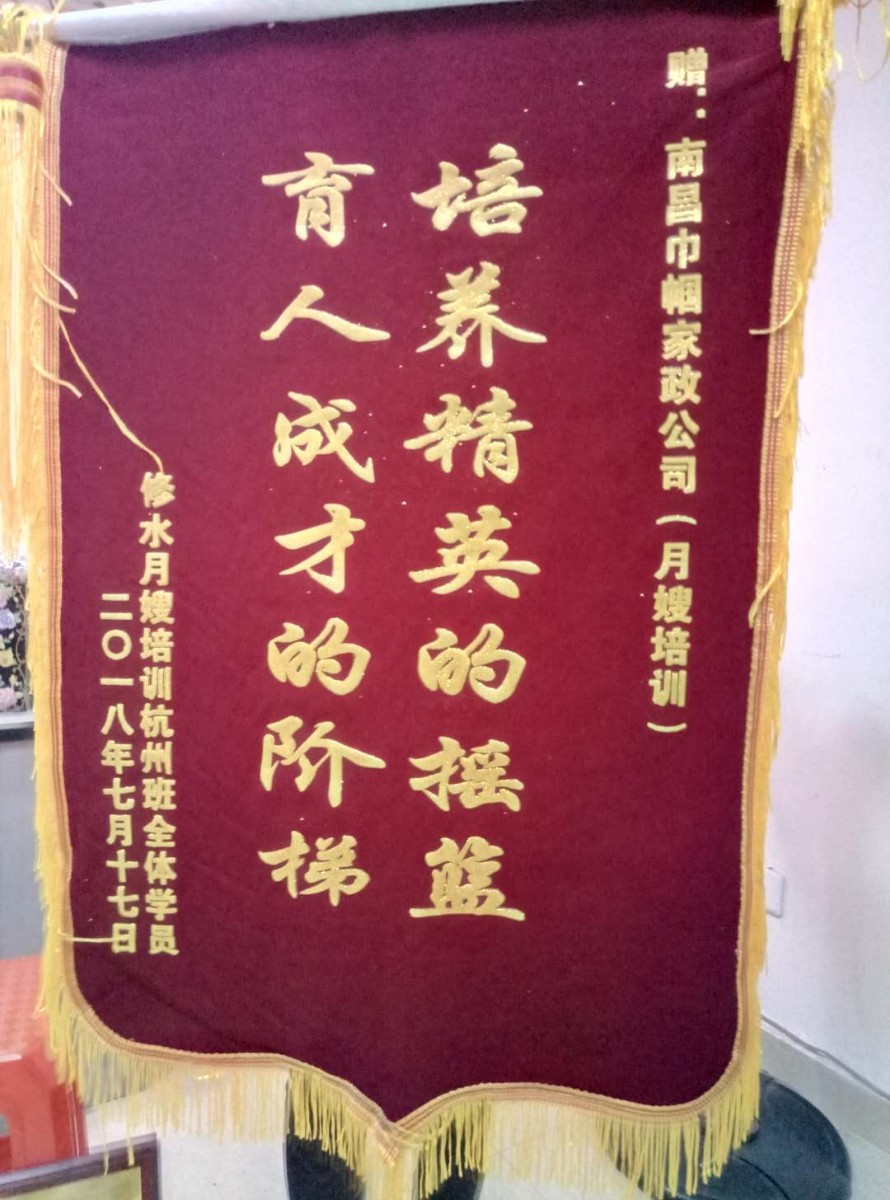 赠：南昌巾帼家政公司（月嫂培训）
培养精英的摇蓝
育人成才的阶梯
修水月嫂培训杭州班全体学员
二〇一八年七月十七日